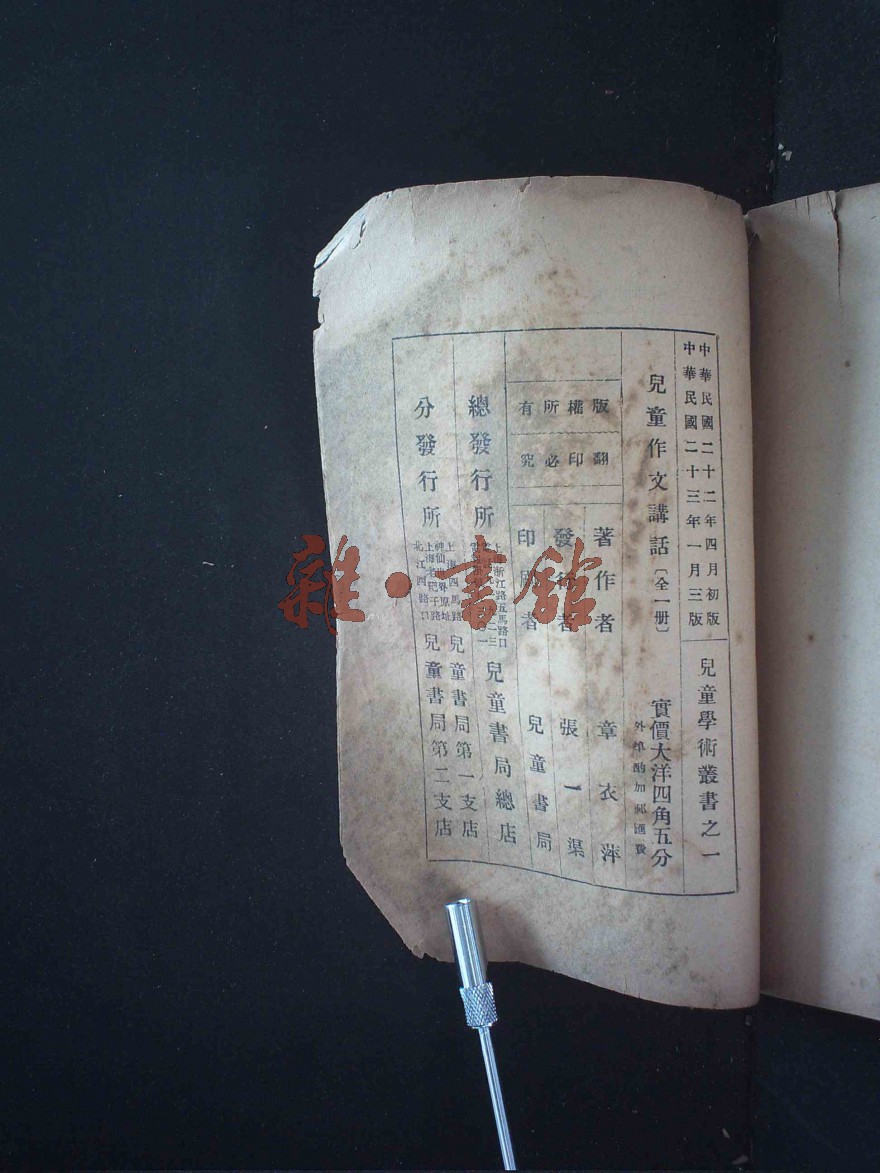 中華民國二十二年四月初版
中華民國二十三年一月三版
兒童學術叢書之一
兒童作文講話〔全一册〕
實價大洋四角五分
外埠酌加郵匯費
版權所有
翻印必究
著作者 章衣萍
發行者 張一渠
印刷者 兒童書局
總發行所
上海浙江路五馬路口
兒童書局總店
分發行所
上海四馬路
神仙世界原址
兒童書局第一支店
上海老靶子路
北江西路口
兒童書局第二支店
雜·書館